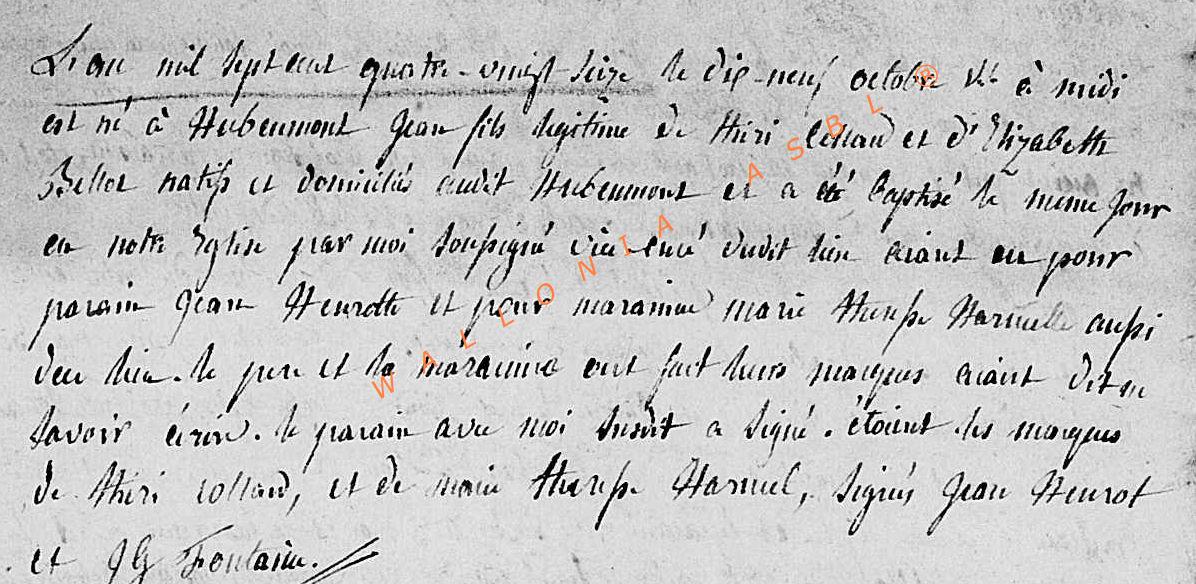 L'an mil sept cent quatre-vingt seize le dix-neuf octobre à midi
est né à Hubermont Jean fils legitime de thiri Collard et d'Elizabeth
Bellot natifs et domiciliés audit Hubermont et a été baptisé le meme jour
en notre Eglise par moi soussigné vice-curé dudit lieu aiant eu pour
parain Jean Henrotte et pour maraine marie therese Harnelle aussi
lieu. le pere et la maraine ont fait leurs marques aiant dit ne
savoir écrire. le parain avec moi susdit a signé. étoient les marques
de thiri collard, et de marie therese Harnuel, signés Jean Henrot
et JG Fontaine.
WALLONIA ASBL ®